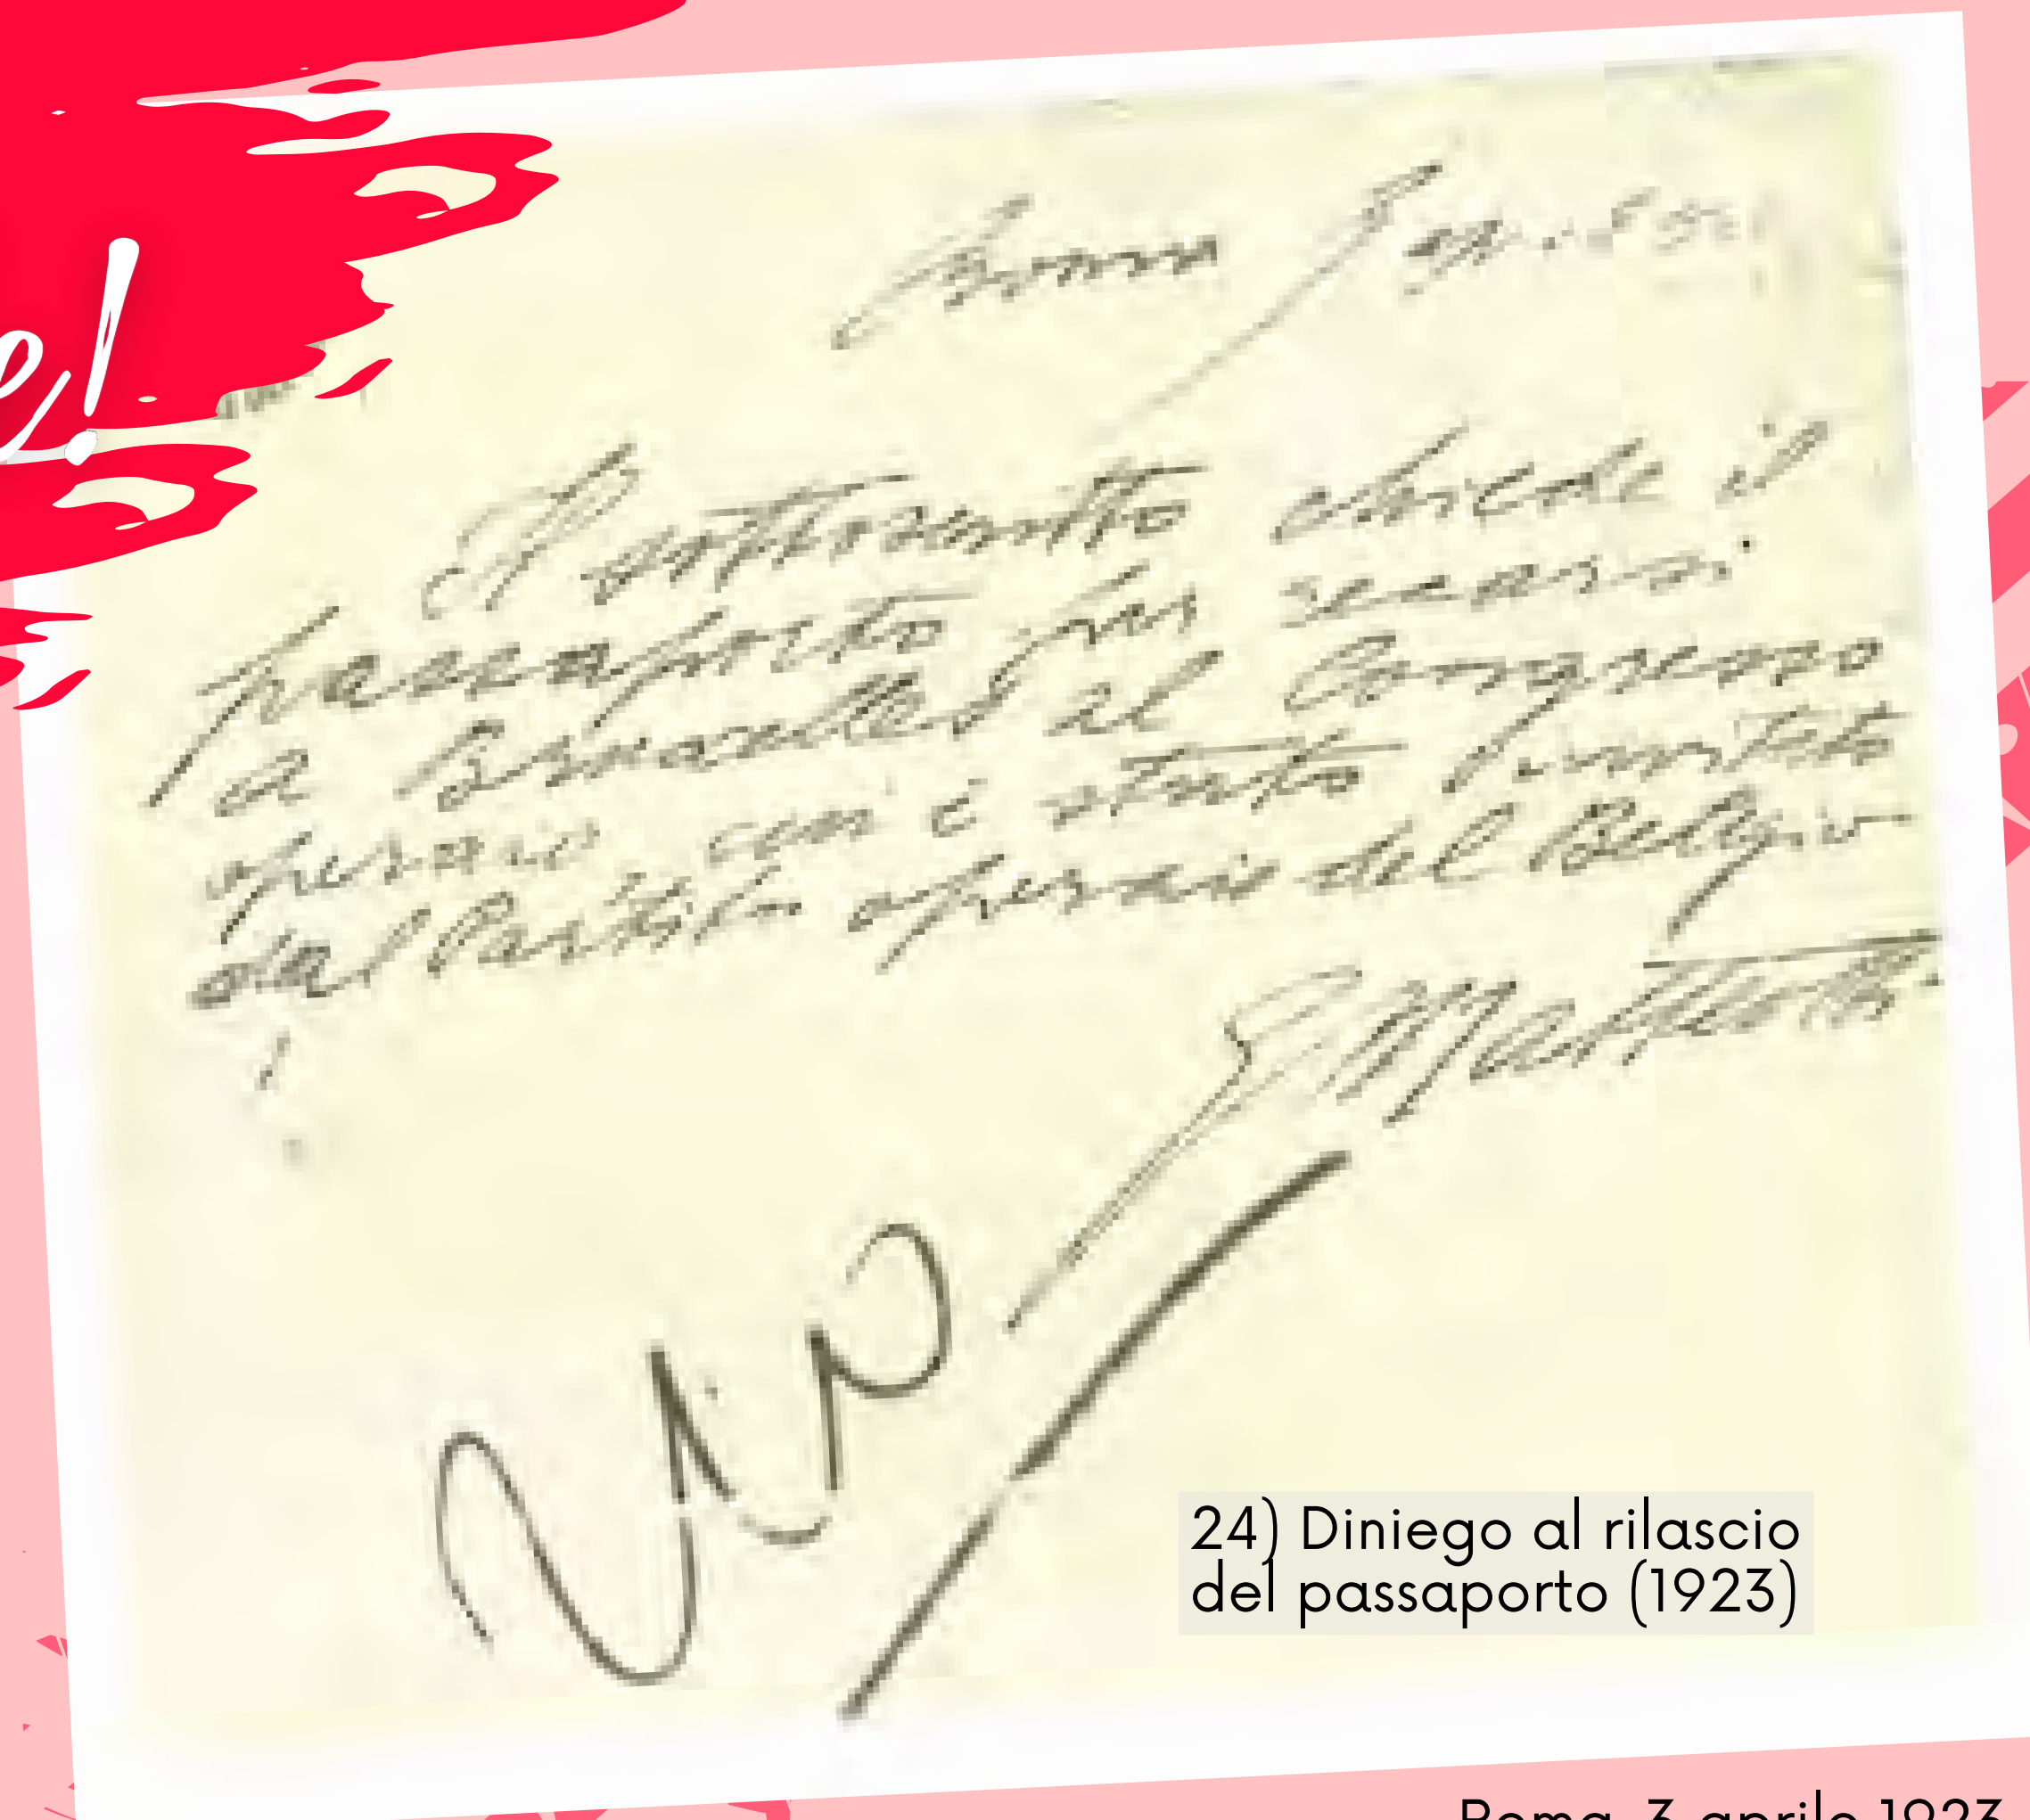 e!
Roma 3 aprile 923
Il sottoscritto chiede il
passaporto per recarsi
a Bruxelles al Congresso
operaio cui è stato invitato
dal Partito operaio del Belgio
G Matteotti
No
24) Diniego al rilascio
del passaporto (1923)
Roma, 3 aprile 1923